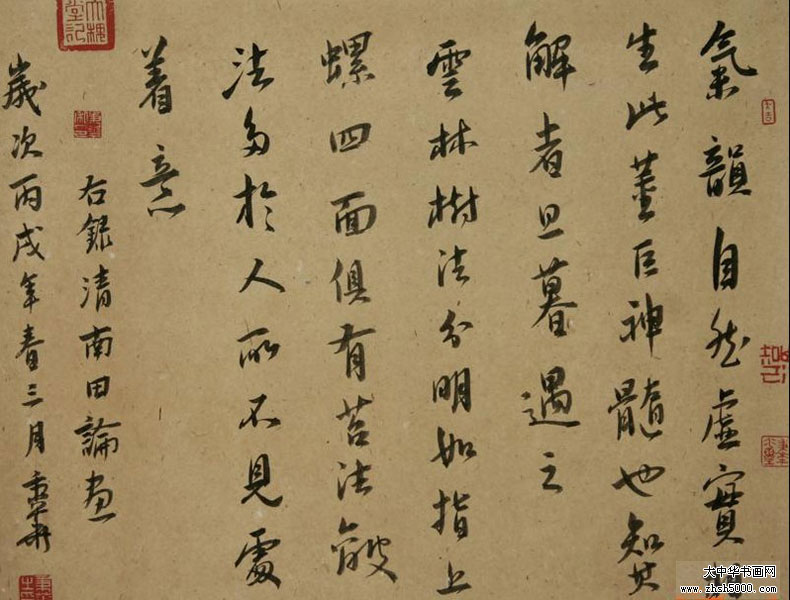 氣韻自然虛實
生此董巨神髓也知其
解者旦暮遇之
雲林樹法分明如指上
螺四面俱有苔法皴
法多於人所不見處
着意
右錄清南田論畫
歲次丙戌年春三月
大中华书画网
www.zhsh5000.com